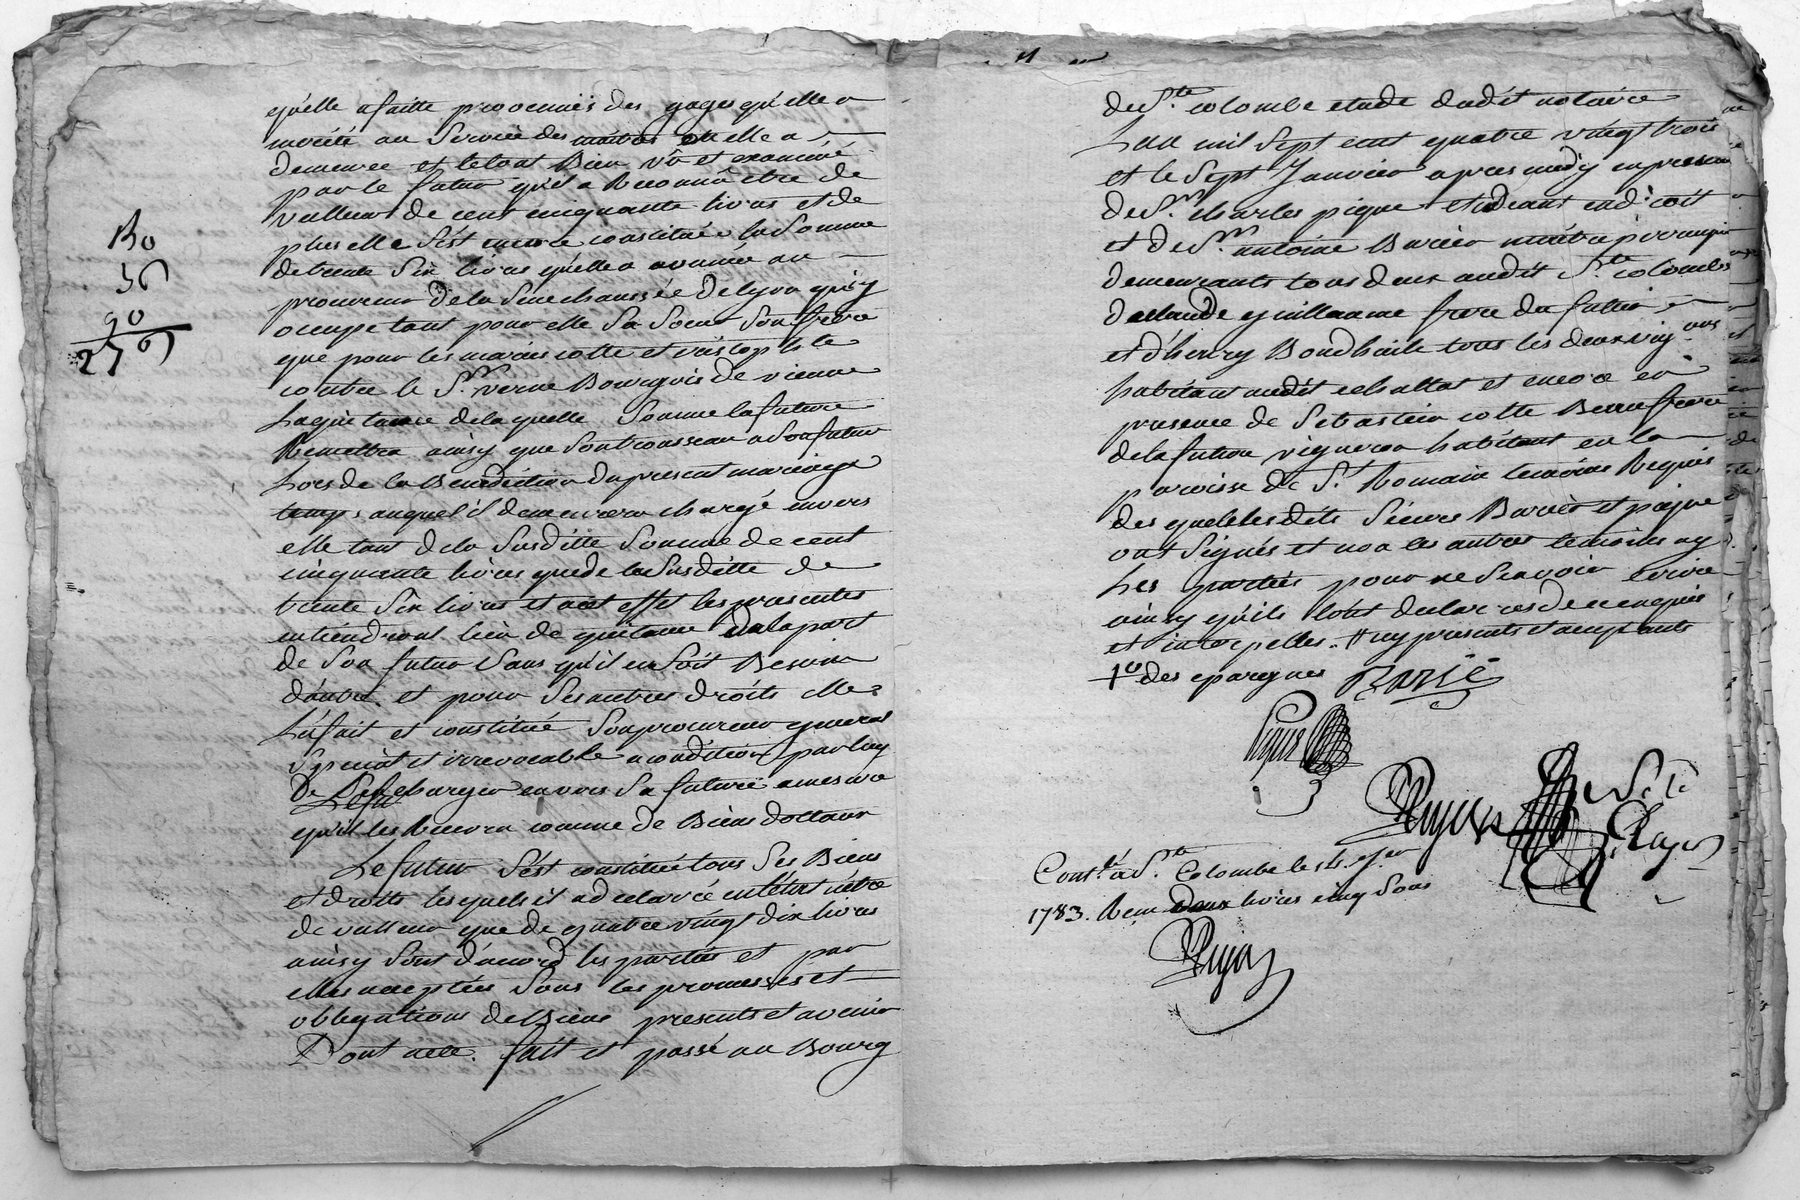 150
36
90
276
qu'elle a faitte provenües des gages qu'elle a
mérité au service des maitres où elle a
demeurée et le tout Bien vû et examiné
par le futur qu'il a Reconnû etre de
valleur de cent cinquante livres et de
plus elle s'est encore constituée la somme
de trente six livres qu'elle a avancé au
procureur de la senechaussée de Lyon qui y
occupe tant pour elle sa soeur son frere
que pour les mariés colle et
contre le Sr. verne Bourgeois de vienne
Laquitance de laquelle somme la future
Remettra ainsy que son trousseau a son futur
Lors de la Benediction du present mariage
temps auquel il demeurera chargé envers
elle tant de la susditte somme de cent
cinquante livres que de la susditte de
trente six livres et a cet effet les presentes
en tiendront lieu de quitance de la part
de son futur sans qu'il en soit Besoin
d'autre. et pour ses autres droits elle
L'a fait et constitué son procureur general
special et irrevocable a condition par luy
de Se charger envers sa future a mesure
qu'il les Recevra comme de Biens dottaux
Le futur s'est constitué tous ses Biens
et droits lesquels il a declaré en l'état n'etre
de valleur que de quatre vingt dix livres
ainsy sont d'acord les parties et par
elles acceptées sous les promesses et
obligations de Biens presents et avenir
Dont acte. fait et passé au Bourg
de Ste colombe etude dudit notaire
Lan mil sept cent quatre vingt trois
et le sept Janvier apres midy en presence
de Sr. charles pique etudiant en droit
et de Sr. antoine Barier maitre perruquier
demeurants tous deux audit Ste. colombe
de claude guillaume frere du futur
et d'henry Bondhaile tous les deux vignerons
habitant audit echallat et encore en
presence de Sebastien colle Beaufrere
de la future vigneron habitant en la
paroisse de St Romain temoins Requis
desquels lesdits sieurs Barier et pique
ont signés et non les autres temoins ny
Les parties pour ne scavoir ecrire
ainsy qu'ils l'ont declarés de ce enquis
et interpellés. # icy presents et acceptants
1o des epargnes Barié
Pique
Contlé. a Ste. Colombe le 1er
1783. Recu deux livres cinq sous